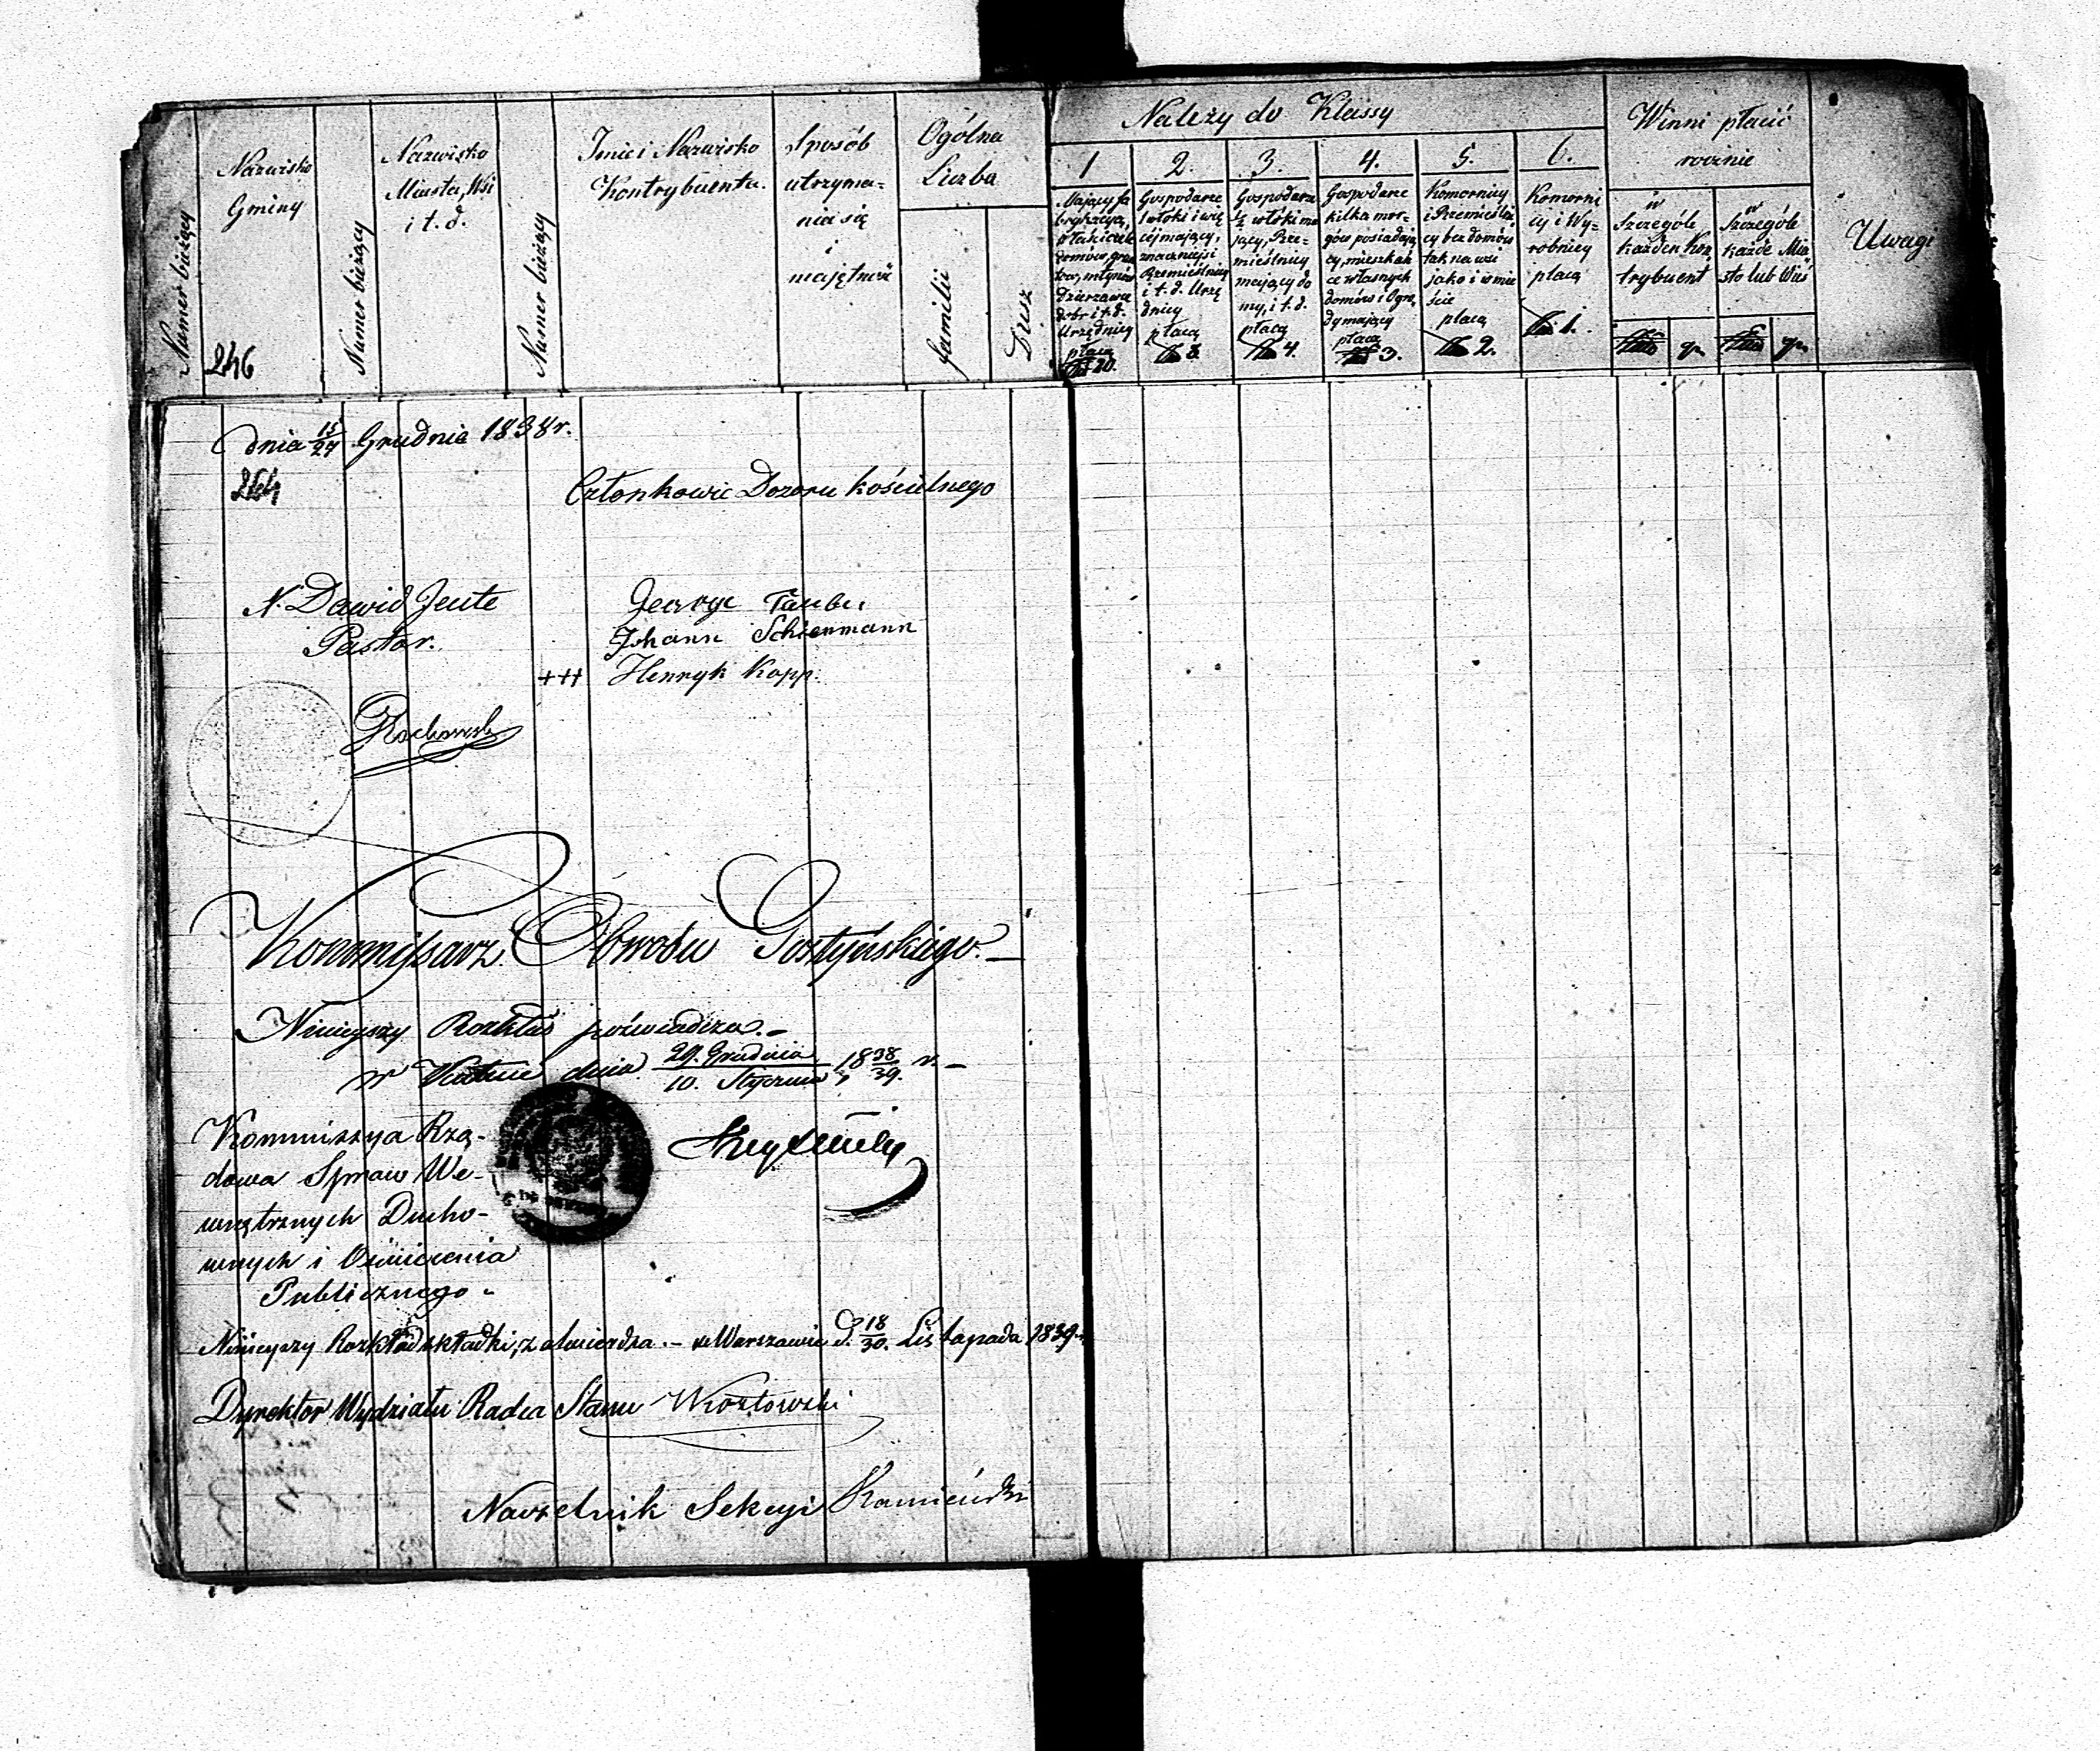 Numer bieżący
Nazwisko
Gminy
246
Numer bieżący
Nazwisko
Miasta, Wsi
i t. d.
Numer bieżący
Imie i Nazwisko
Kontrybuenta.
Sposób
utrzyma=
nia się
i
majętność
Ogólna
Liczba
familii
Dusz
Należy do Klassy
1
Mający fa
brykacyą,
właściciele
domów, grun
tów, młynów
Dzierżawcy
dobr i t. d.
Urzędnicy
płacą
20.
2.
Gospodarze
1 włóki i wię
cej mający,
znaczniejsi
Rzemieślnicy
i t. d. Urzę
dnicy
płacą
3.
Gospodarze
½ włóki ma
jący, Rze=
mieślnicy
mający do
my, i t. d.
płacą
4.
4.
Gospodarze
kilka mor=
gów posiadają
cy, mieszkań
ce własnych
domów i Ogro
dy mający
płacą
3.
5.
Komornicy
i Rzemieślni
cy bez domów
tak na wsi
jako i w mie
ście
płacą
2.
6.
Komorni
cy i Wy=
robnicy
płacą
1.
Winni płacić
rocznie
w
Szczególe
każden Kon
trybuent
gr.
w
Szczególe
każde Mia
sto lub Wieś
gr.
Uwagi
dnia 15/27 Grudnia 1838 r.
264
Członkowie Dozoru kościelnego
N. Dawid Jente
Pastor.
George Taube
Johann Schienmann
+++ Henryk Kopp.
Kommissarz Obwodu Gostyńskiego. –
Ninieyszy Rozkład poświadcza. –
w Kutnie dnia 29. Grudnia/10. Stycznia 1838/39. r. –
Kommissya Rzą-
dowa Spraw We-
wnętrznych Ducho-
wnych i Oświecenia
Publicznego –
Ninieyszy Rozkład składki, zatwierdza. – w Warszawie d. 18/30. Listopada 1839 r.
Dyrektor Wydziału Radca Stanu Kozłowski
Naczelnik Sekcyi Kamieński